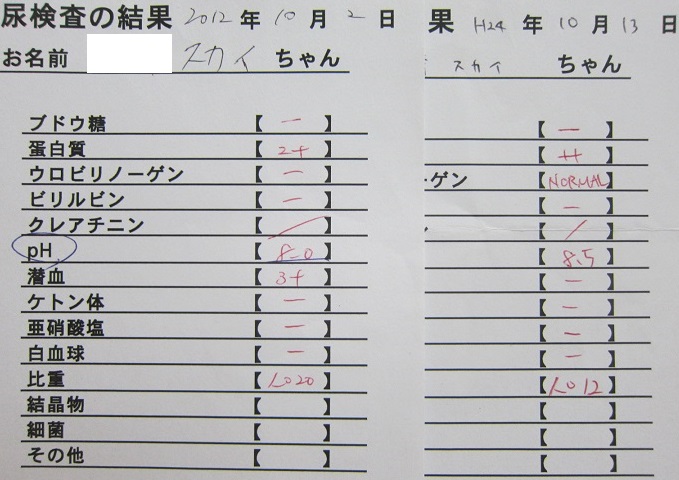 尿検査の結果 2012 年 10 月 2 日
お名前 スカイ ちゃん
ブドウ糖 【 － 】
蛋白質 【 2+ 】
ウロビリノーゲン 【 － 】
ビリルビン 【 － 】
クレアチニン 【 ／ 】
pH 【 8.0 】
潜血 【 3+ 】
ケトン体 【 － 】
亜硝酸塩 【 － 】
白血球 【 － 】
比重 【 1.020 】
結晶物 【 】
細菌 【 】
その他 【 】
果 H24 年 10 月 13 日
スカイ ちゃん
【 － 】
【 ++ 】
ーゲン 【 NORMAL 】
【 － 】
【 ／ 】
【 8.5 】
【 － 】
【 － 】
【 － 】
【 － 】
【 1.012 】
【 】
【 】
【 】